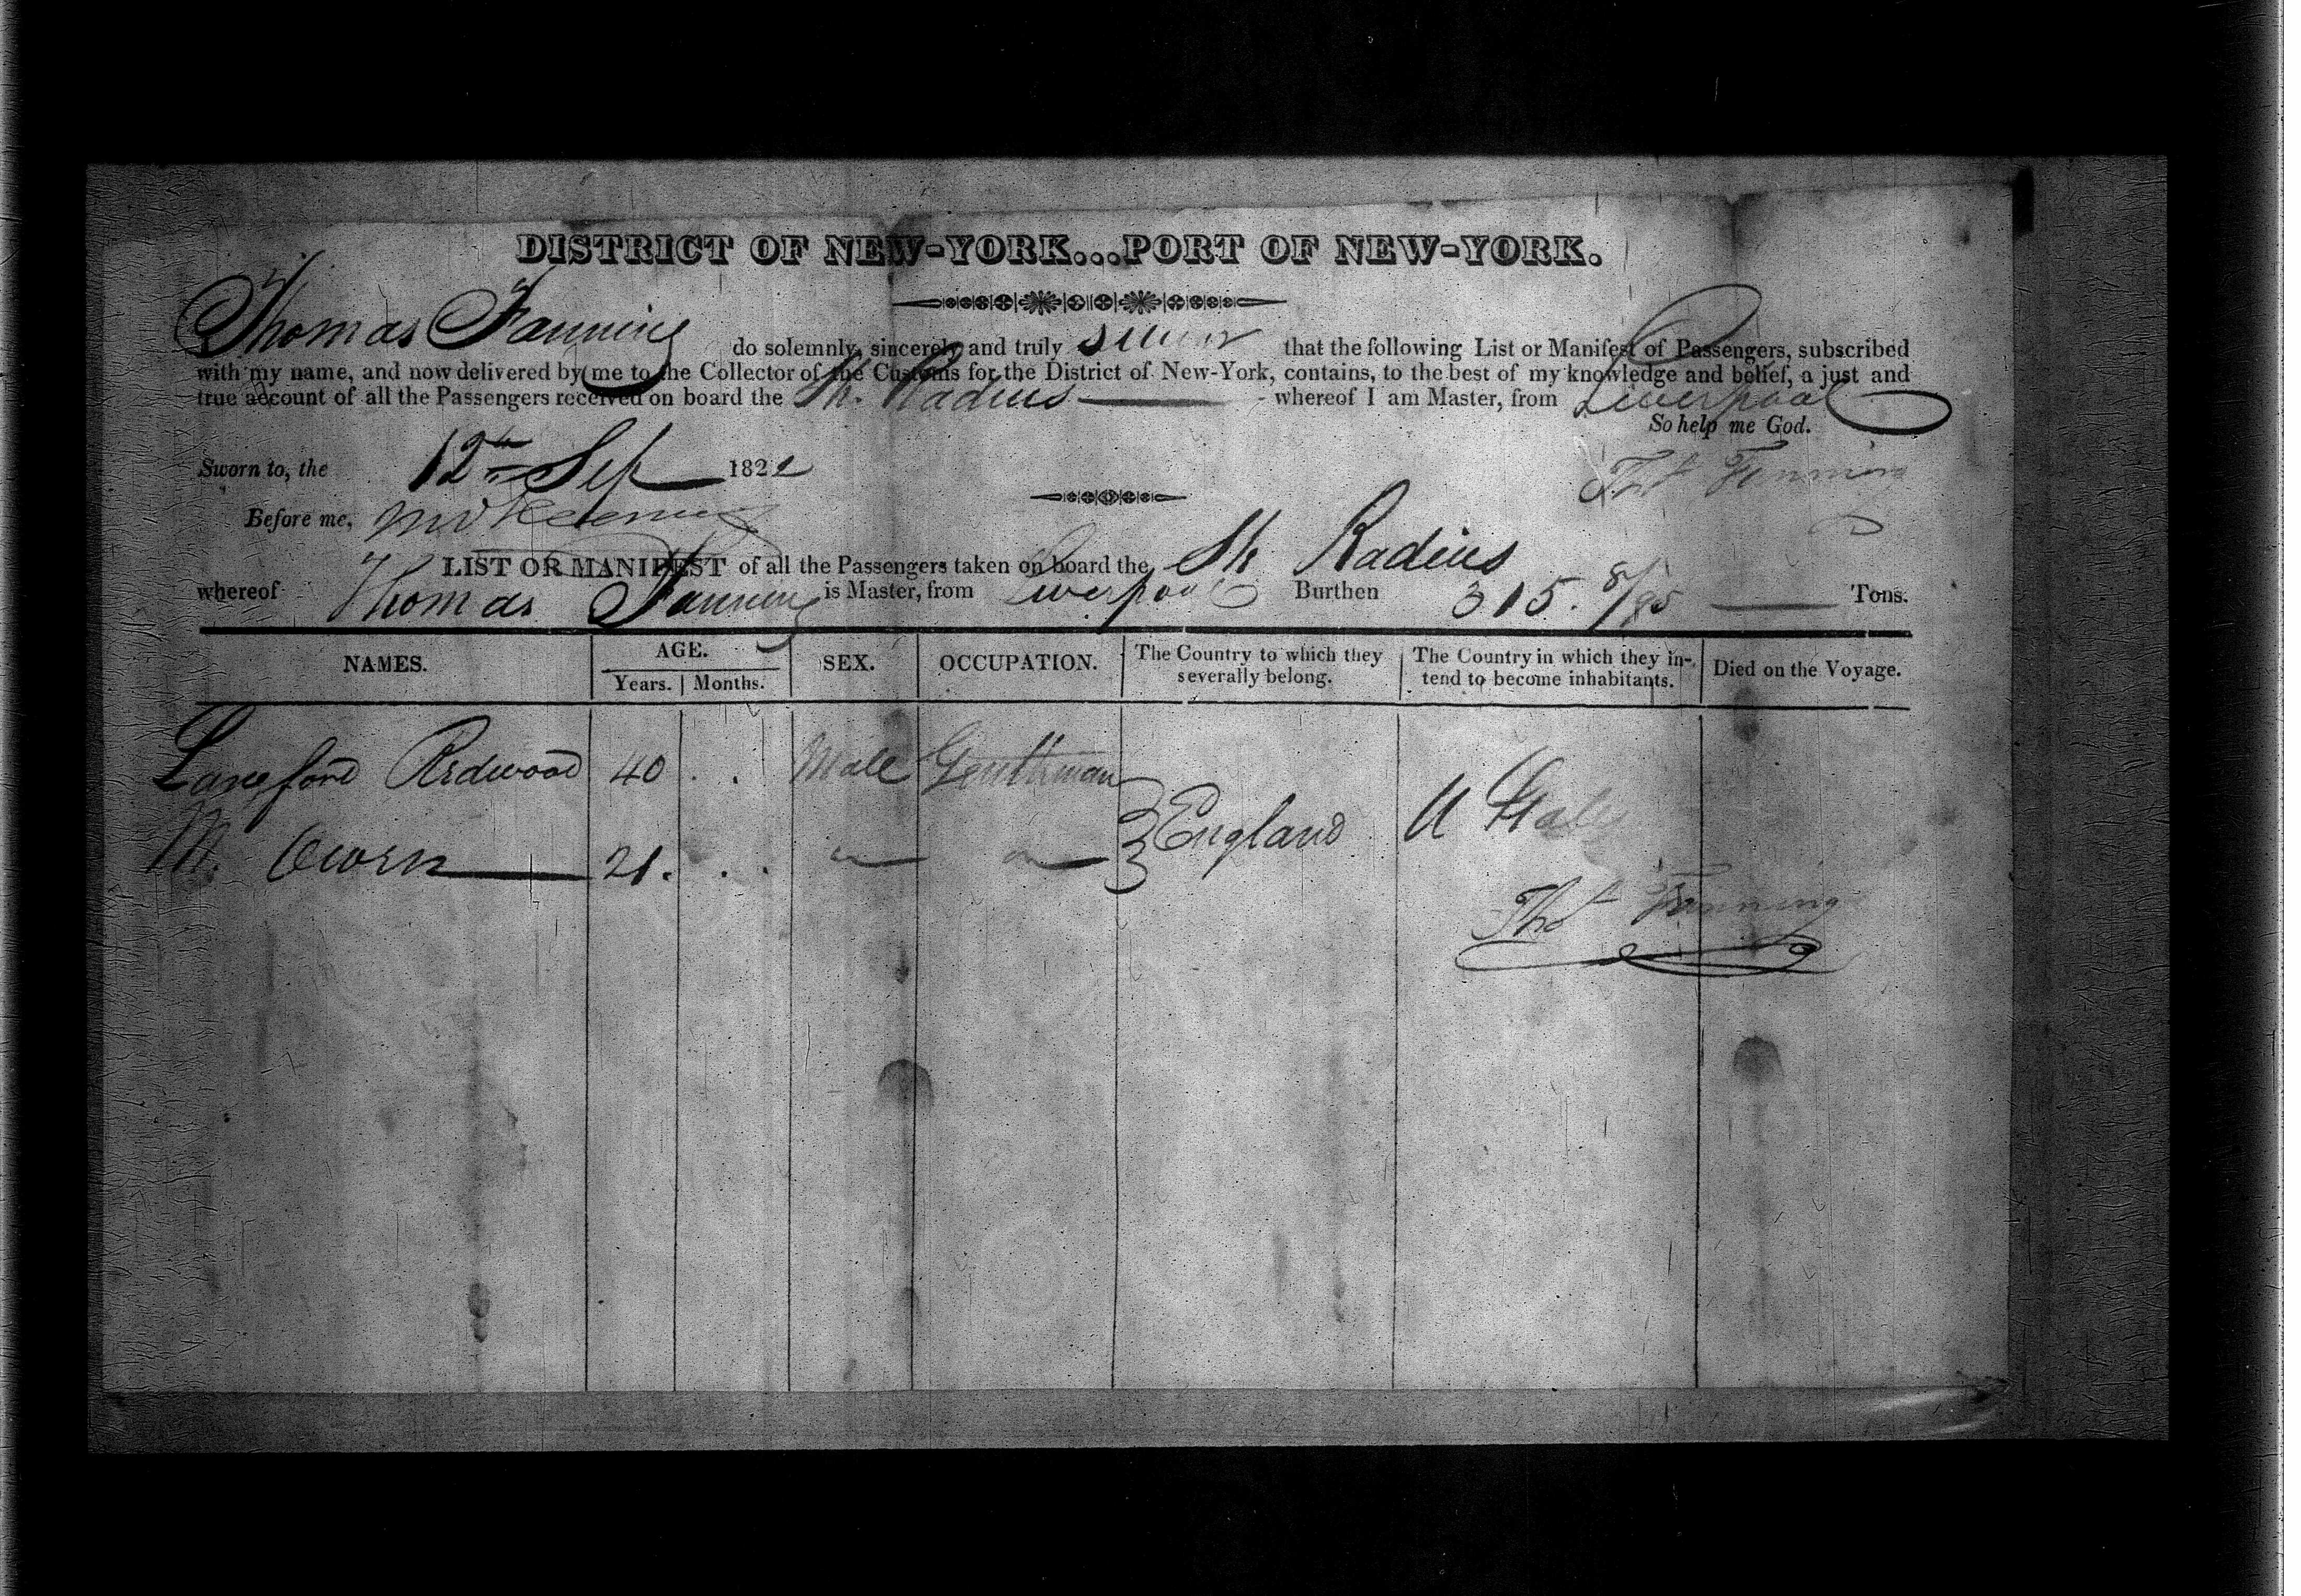 DISTRICT OF NEW-YORK...PORT OF NEW-YORK.
Thomas Fanning do solemnly, sincerely and truly swear that the following List or Manifest of Passengers, subscribed
with my name, and now delivered by me to the Collector of the Customs for the District of New-York, contains, to the best of my knowledge and belief, a just and
true account of all the Passengers received on board the Sh. Radius whereof I am Master, from Liverpool
So help me God.
Sworn to, the 12th Sep 1822
Thos Fanning
Before me,
LIST OR MANIFEST of all the Passengers taken on board the Sh Radius
whereof Thomas Fanning is Master, from Liverpool Burthen 315. 8/95 Tons.
NAMES. AGE. Years. Months. SEX. OCCUPATION. The Country to which they severally belong. The Country in which they intend to become inhabitants. Died on the Voyage.
Langford Redwood 40 . . Male Gentleman
England U States
M. Owen 21. . .
Thos Fanning